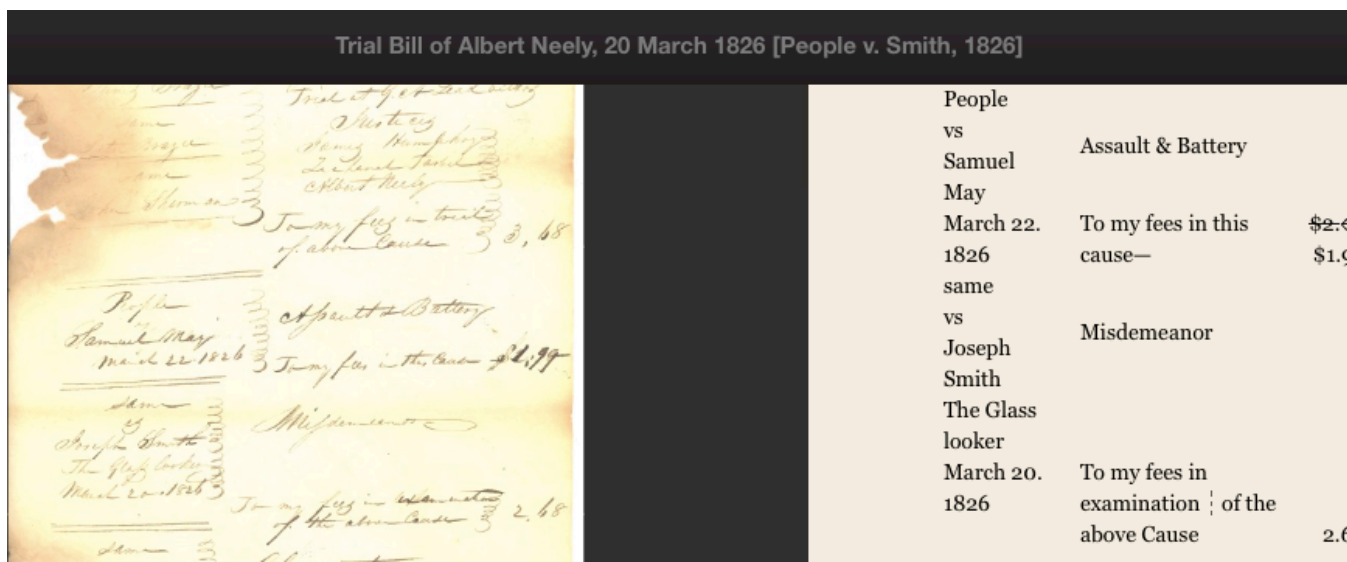 Trial Bill of Albert Neely, 20 March 1826 [People v. Smith, 1826]
same
same
Justices
James Humphrey
Albert Neely
To my fees in trial
of above Cause 3,68
People
Samuel May
March 22 1826
Assault & Battery
To my fees in this Cause $1,99
same
vs
Joseph Smith
The Glass looker
March 20 1826
Misdemeanor
To my fees in examination
of the above Cause 2,68
same
People
vs
Samuel
May
Assault & Battery
March 22.
1826
To my fees in this
cause—
$2.
$1.9
same
vs
Joseph
Smith
The Glass
looker
Misdemeanor
March 20.
1826
To my fees in
examination ¦ of the
above Cause 2.6